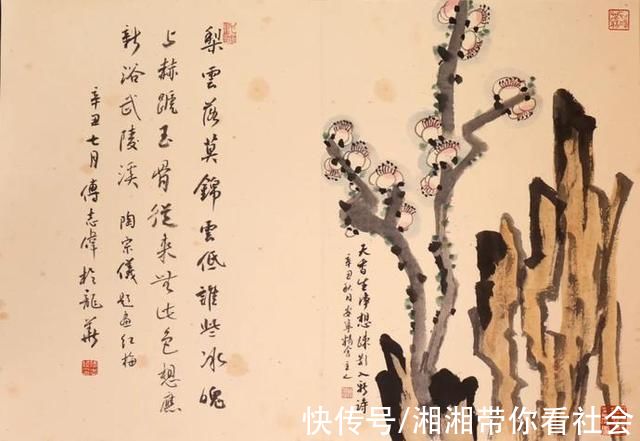 梨雲落莫錦雲低誰些冰魄
上赫蹏玉骨從来無此色想應
新浴武陵溪 陶宗儀題画紅梅
辛丑七月傅志偉於龍華
天香生淨想疎影入新詩
辛丑秋月
快传号/湘湘带你看社会